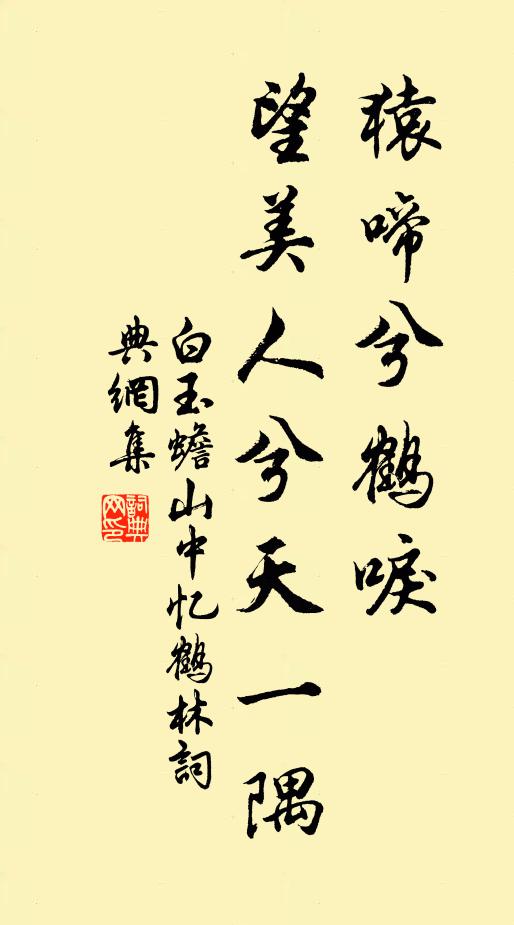 猿啼兮鶴唳
望美人兮天一隅
白玉蟾山中忆鶴林詞
典網集
詞典
网印